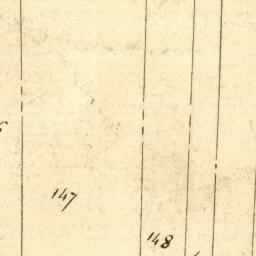 147
148